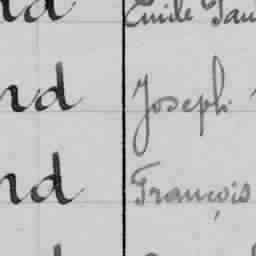 nd Emile Pau
nd Joseph
nd François